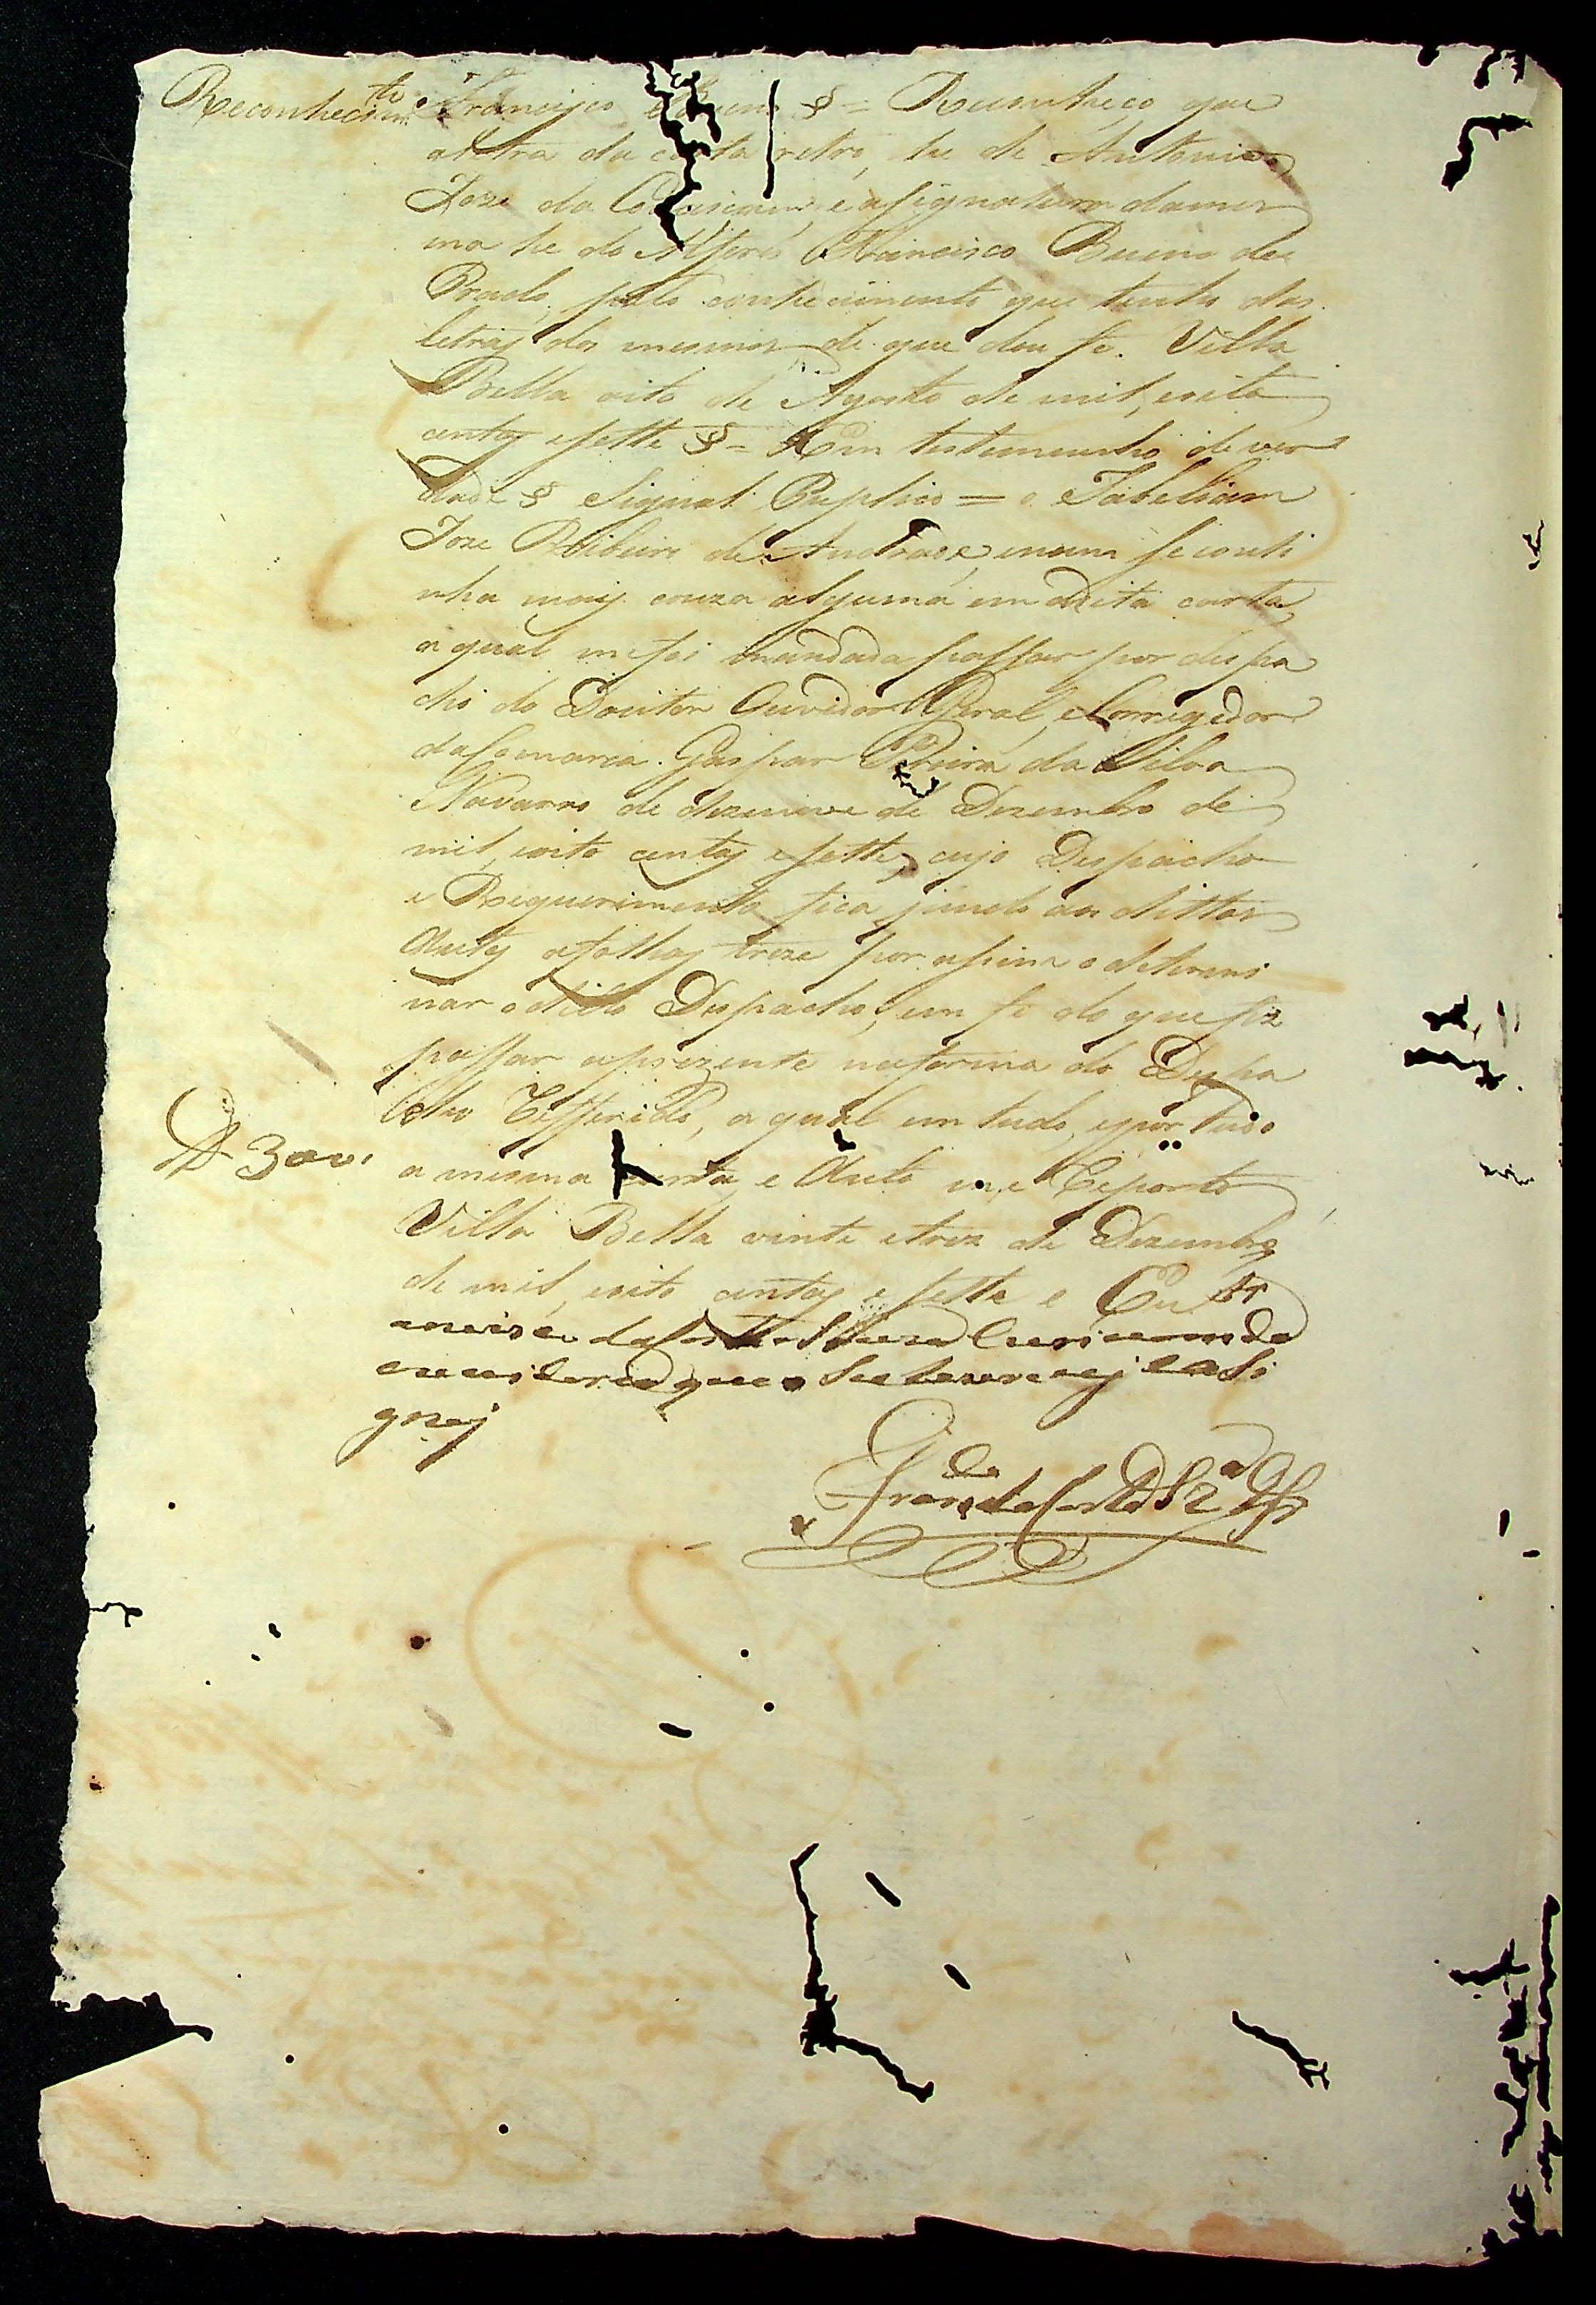 Reconhecim.to Francisco Bueno § = Reconheço que
a letra da carta retro, he de Antonio
Joze da e asignatura da mes
ma he do Alferes Francisco Bueno de
Prado, pelo conhecimento que tenho das
letras dos mesmos de que dou fé. Villa
Bella oito de Agosto de mil, eoito
centos esette § = Em testemunho de ver
dade § Signal Puplico = o Tabeliam
Joze Ribeiro de Andrade, enam se conti
nha mais couza alguma em dita carta,
a qual me foi mandada passar por despa
cho do Doutor Ouvidor Geral, eCorregedor
da Comarca Gaspar Pereira da Silva
Navarro de dezenove de Dezembro de
mil, eoito centos esette, cujo Despacho
e Requerimento fica junto aos dittos
Autos afolhas treze por asim o determi
nar o dito Despacho, em fé do que fiz
passar aprezente naforma do Despa
cho Refferido, a qual em tudo, epor tudo
300. a mesma carta, e Auto me Reporto
Villa Bella vinte etrez de Dezembro
de mil, eoito centos e sette e Eu Fr
ancisco da Costa
que o Sobescrevy easi
gney
Fran.co da Costa